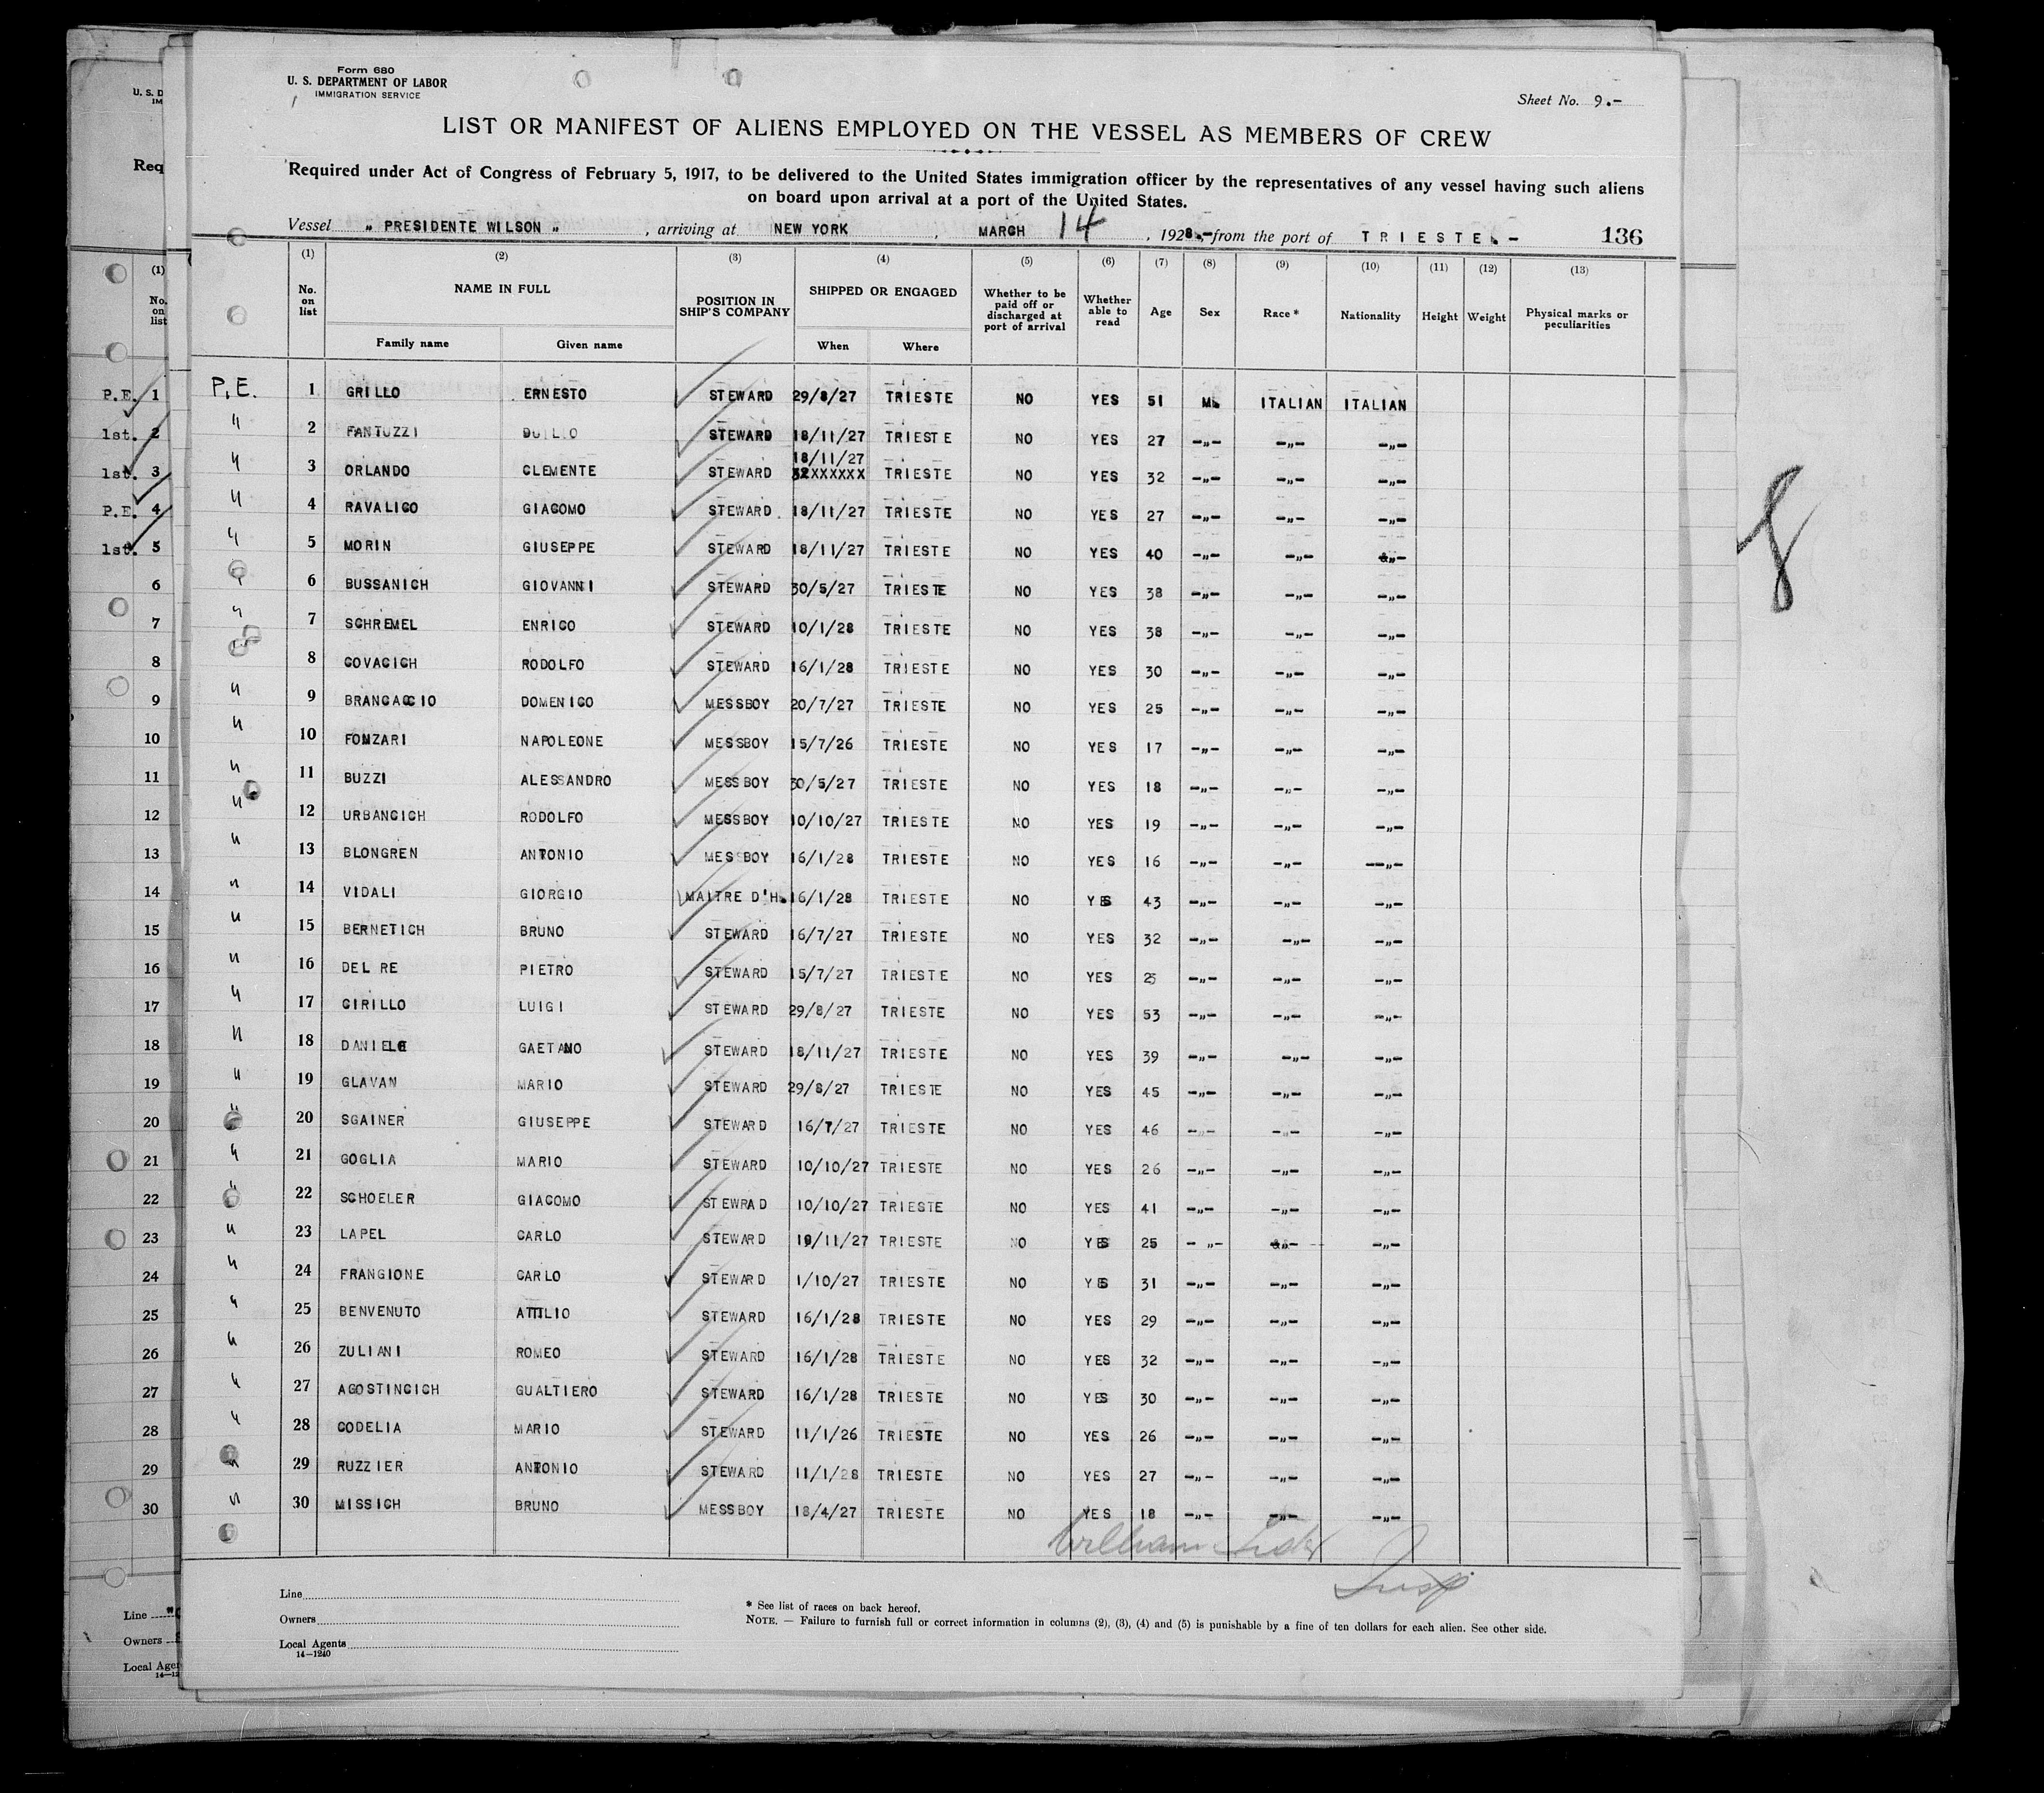 Form 680
U. S. DEPARTMENT OF LABOR
IMMIGRATION SERVICE
Sheet No. 9.-
LIST OR MANIFEST OF ALIENS EMPLOYED ON THE VESSEL AS MEMBERS OF CREW
Required under Act of Congress of February 5, 1917, to be delivered to the United States immigration officer by the representatives of any vessel having such aliens
on board upon arrival at a port of the United States.
Vessel „ PRESIDENTE WILSON „ , arriving at NEW YORK , MARCH 14 , 1928.-, from the port of TRIESTE.- 136
(1) (2) (3) (4) (5) (6) (7) (8) (9) (10) (11) (12) (13)
No. on list NAME IN FULL POSITION IN SHIP'S COMPANY SHIPPED OR ENGAGED Whether to be paid off or discharged at port of arrival Whether able to read Age Sex Race * Nationality Height Weight Physical marks or peculiarities
Family name Given name When Where
P.E. 1 GRILLO ERNESTO STEWARD 29/8/27 TRIESTE NO YES 51 M. ITALIAN ITALIAN
" 2 FANTUZZI DUILIO STEWARD 18/11/27 TRIESTE NO YES 27 -„- -„- -„-
18/11/27
" 3 ORLANDO CLEMENTE STEWARD 32XXXXXX TRIESTE NO YES 32 -„- -„- -„-
" 4 RAVALICO GIACOMO STEWARD. 18/11/27 TRIESTE NO YES 27 -„- -„- -„-
" 5 MORIN GIUSEPPE STEWARD 18/11/27 TRIESTE NO YES 40 -„- -„- -„-
" 6 BUSSANICH GIOVANNI STEWARD 30/5/27 TRIESTE NO YES 38 -„- -„- -„-
" 7 SCHREMEL ENRICO STEWARD 10/1/28 TRIESTE NO YES 38 -„- -„- -„-
" 8 COVACICH RODOLFO STEWARD 16/1/28 TRIESTE NO YES 30 -„- -„- -„-
" 9 BRANCACCIO DOMENICO MESSBOY 20/7/27 TRIESTE NO YES 25 -„- -„- -„-
" 10 FONZARI NAPOLEONE MESSBOY 15/7/26 TRIESTE NO YES 17 -„- -„- -„-
" 11 BUZZI ALESSANDRO MESSBOY 30/5/27 TRIESTE NO YES 18 -„- -„- -„-
" 12 URBANCICH RODOLFO MESSBOY 10/10/27 TRIESTE NO YES 19 -„- -„- -„-
" 13 BLONGREN ANTONIO MESSBOY 16/1/28 TRIESTE NO YES 16 -„- -„- --„-
" 14 VIDALI GIORGIO MAITRE D'H. 16/1/28 TRIESTE NO YES 43 -„- -„- -„-
" 15 BERNETICH BRUNO STEWARD 16/7/27 TRIESTE NO YES 32 -„- -„- -„-
" 16 DEL RE PIETRO STEWARD 15/7/27 TRIESTE NO YES 25 -„- -„- -„-
" 17 CIRILLO LUIGI STEWARD 29/8/27 TRIESTE NO YES 53 -„- -„- -„-
" 18 DANIELE GAETANO STEWARD 18/11/27 TRIESTE NO YES 39 -„- -„- -„-
" 19 GLAVAN MARIO STEWARD 29/8/27 TRIESTE NO YES 45 -„- -„- -„-
" 20 SGAINER GIUSEPPE STEWARD 16/7/27 TRIESTE NO YES 46 -„- -„- -„-
" 21 GOGLIA MARIO STEWARD 10/10/27 TRIESTE NO YES 26 -„- -„- -„-
" 22 SCHOELER GIACOMO STEWRAD 10/10/27 TRIESTE NO YES 41 -„- -„- -„-
" 23 LAPEL CARLO STEWARD 19/11/27 TRIESTE NO YES 25 - „- -„- -„-
" 24 FRANGIONE CARLO STEWARD 1/10/27 TRIESTE NO YES 31 -„- -„- -„-
" 25 BENVENUTO ATTILIO STEWARD 16/1/28 TRIESTE NO YES 29 -„- -„- -„-
" 26 ZULIANI ROMEO STEWARD 16/1/28 TRIESTE NO YES 32 -„- -„- -„-
" 27 AGOSTINCICH GUALTIERO STEWARD 16/1/28 TRIESTE NO YES 30 -„- -„- -„-
" 28 CODELIA MARIO STEWARD 11/1/26 TRIESTE NO YES 26 -„- -„- -„-
" 29 RUZZIER ANTONIO STEWARD 11/1/28 TRIESTE NO YES 27 -„- -„- -„-
" 30 MISSICH BRUNO MESSBOY 18/4/27 TRIESTE NO YES 18 -„- -„- -„-
William
Insp
Line
Owners
Local Agents
14-1240
* See list of races on back hereof.
NOTE. — Failure to furnish full or correct information in columns (2), (3), (4) and (5) is punishable by a fine of ten dollars for each alien. See other side.
U. S. D
IM
Req
(1)
No. on list
P.E. 1
1st. 2
1st. 3
P.E. 4
1st. 5
6
7
8
9
10
11
12
13
14
15
16
17
18
19
20
21
22
23
24
25
26
27
28
29
30
Line
Owners
Local Age
14-12
8